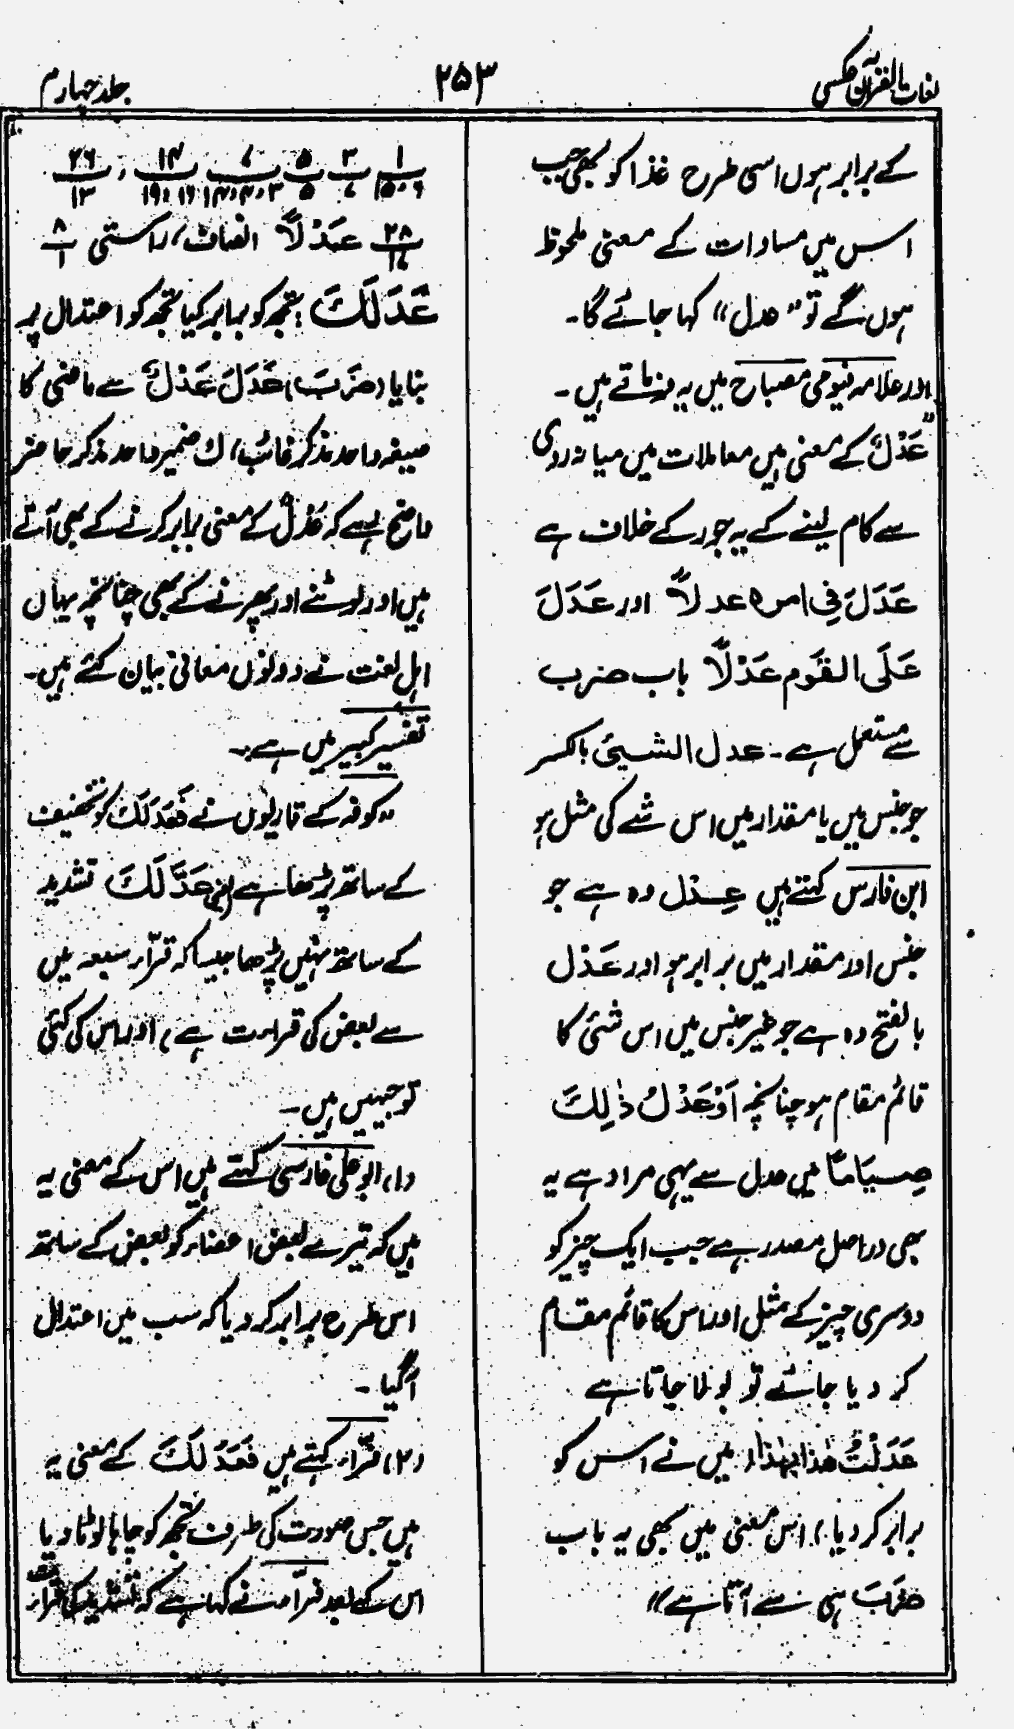 لغات القرآن عکسی
۲۵۳
جلد چہارم
کے برابر ہوں اسی طرح غذا کو بھی جب
اس میں مساوات کے معنی ملحوظ
ہوں گے تو "عدل" کہا جائے گا۔
اور علامہ فیومی مصباح میں یہ فرماتے ہیں۔
"عَدْلٌ کے معنی ہیں معاملات میں میانہ روی
سے کام لینے کے یہ جور کے خلاف ہے
عَدَلَ فِی امرہ عدلاً اور عَدَلَ
عَلَی القَوم عَدْلاً باب ضرب
سے مستعمل ہے۔ عدل الشیئ بالکسر
جو جنس میں یا مقدار میں اس شے کی مثل ہو
ابن فارس کہتے ہیں عِدْل وہ ہے جو
جنس اور مقدار میں برابر ہو اور عَدْل
بالفتح وہ ہے جو غیر جنس میں اس شئی کا
قائم مقام ہو چنانچہ اَوْعَدْلُ ذٰلِکَ
صِیَامًا میں عدل سے یہی مراد ہے یہ
بھی دراصل مصدر ہے جب ایک چیز کو
دوسری چیز کے مثل اور اس کا قائم مقام
کر دیا جائے تو بولا جاتا ہے
عَدَلْتُ ھٰذا بِھٰذا (میں نے اس کو
برابر کر دیا) اس معنی میں بھی یہ باب
ضَرَبَ ہی سے آتا ہے"
۱/۶،۱۵ ۳/۷ ۵/۵ ۷/۳،۴،۱۴ ۱۴/۱۶،۱۹ ، ۲۶/۱۳
۲۸/۱۷ عَدْلاً انصاف، راستی ۸/۱
عَدَلَکَ: تجھ کو برابر کیا تجھ کو اعتدال پر
بنایا (ضَرَبَ) عَدَلَ عَدْلٌ سے ماضی کا
صیغہ واحد مذکر غائب، ك ضمیر واحد مذکر حاضر
واضح رہے کہ عَدْلٌ کے معنی برابر کرنے کے بھی آتے
ہیں اور لوٹنے اور پھرنے کے بھی چنانچہ یہاں
اہل لغت نے دونوں معانی بیان کئے ہیں۔
تفسیر کبیر میں ہے:۔
"کوفہ کے قاریوں نے فَعَدَلَکَ کو تخفیف
کے ساتھ پڑھا ہے (یعنی عَدَّلَکَ تشدید
کے ساتھ نہیں پڑھا جیسا کہ قرّاء سبعہ میں
سے بعض کی قراءت ہے) اور اس کی کئی
توجیہیں ہیں۔
(۱) ابو علی فارسی کہتے ہیں اس کے معنی یہ
ہیں کہ تیرے بعض اعضاء کو بعض کے ساتھ
اس طرح برابر کر دیا کہ سب میں اعتدال
آگیا۔
(۲) فرّاء کہتے ہیں فَعَدَلَکَ کے معنی یہ
ہیں جس صورت کی طرف تجھ کو چاہا لوٹا دیا
اس کے بعد فرّاء نے کہا ہے کہ تشدید کی قراءت